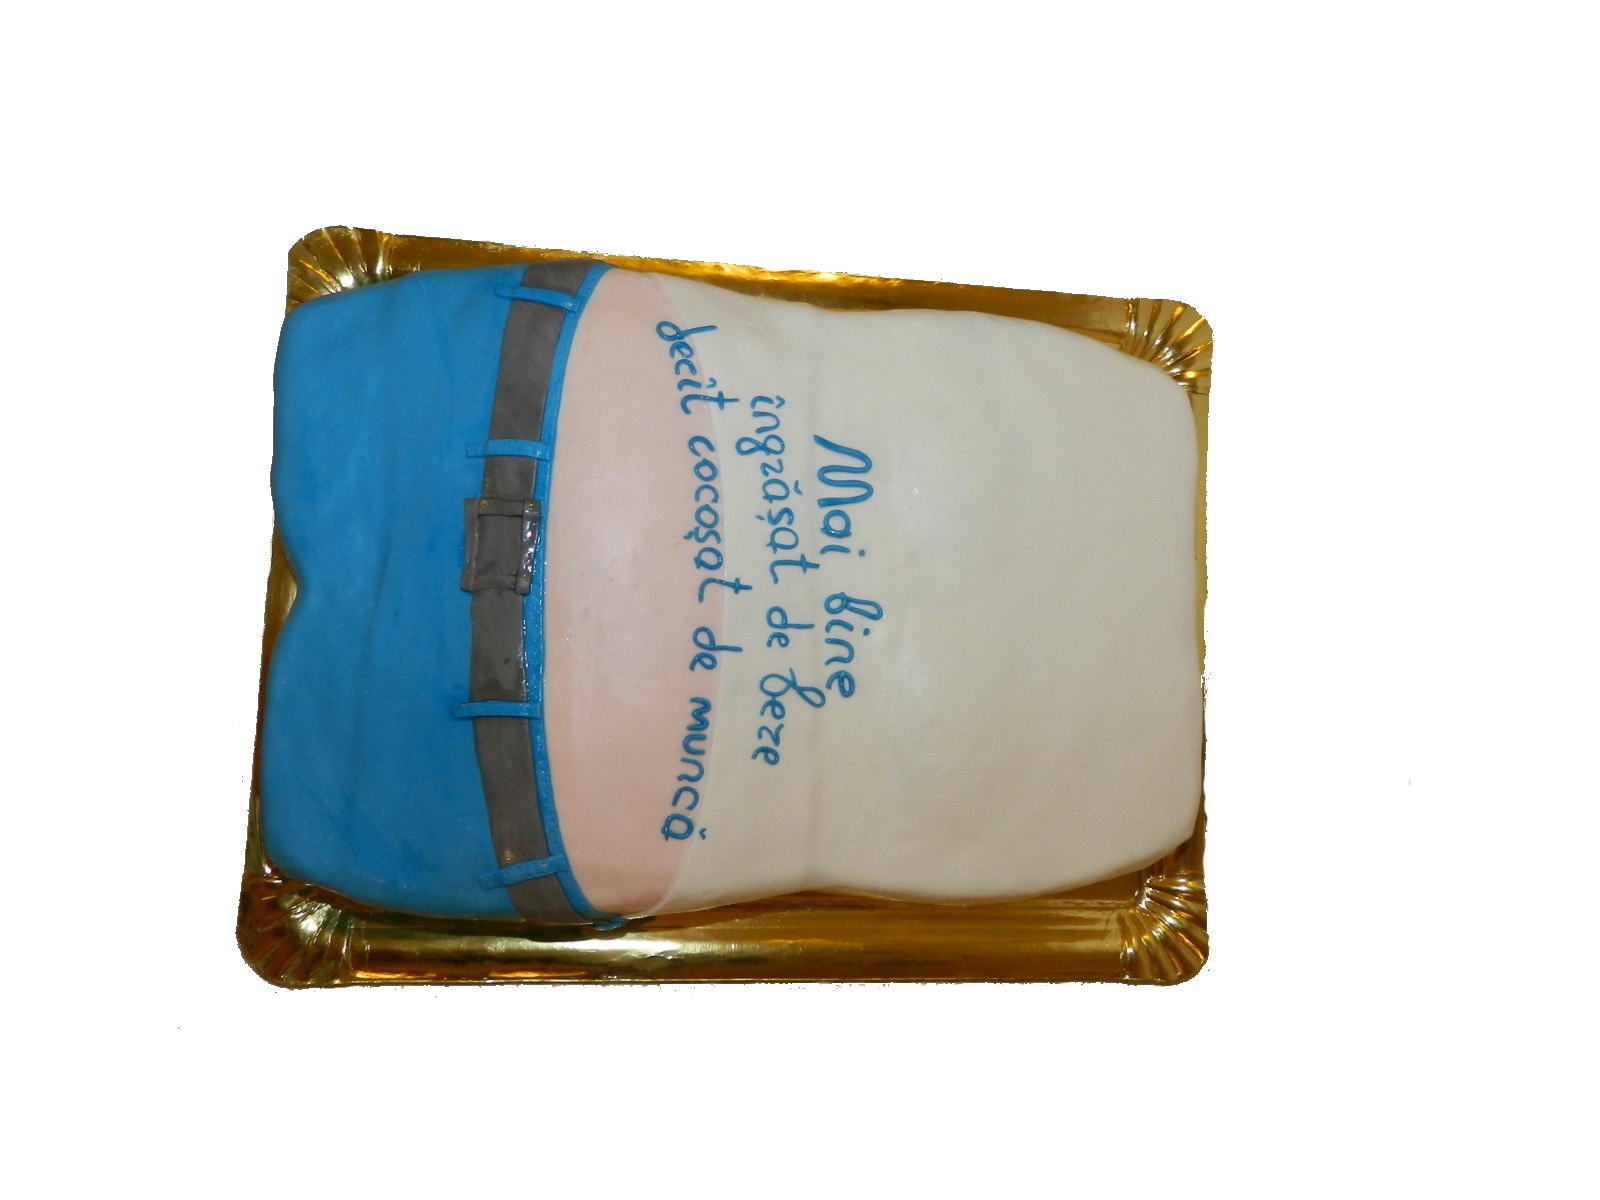 Mai bine
îngrășat de beze
decît cocoșat de muncă